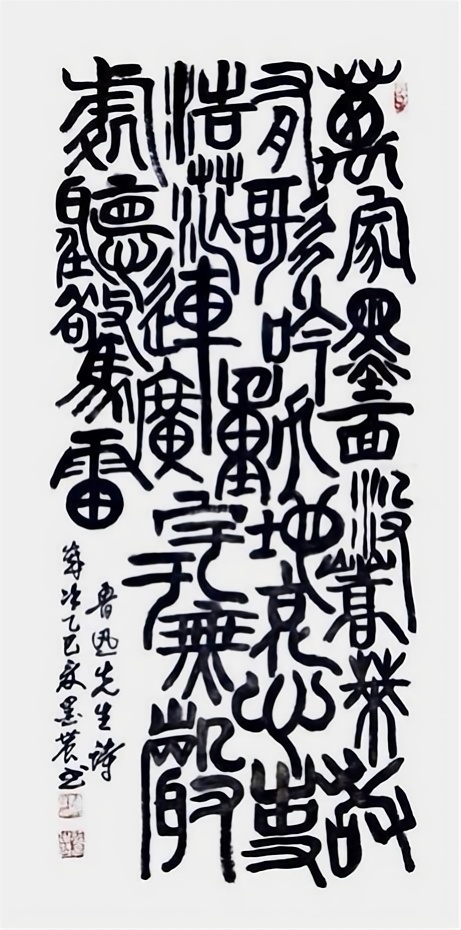 萬家墨面沒蒿萊敢
有歌吟動地哀心事
浩茫連廣宇于無聲
處聽驚雷
魯迅先生詩
歲次乙巳夏墨農书